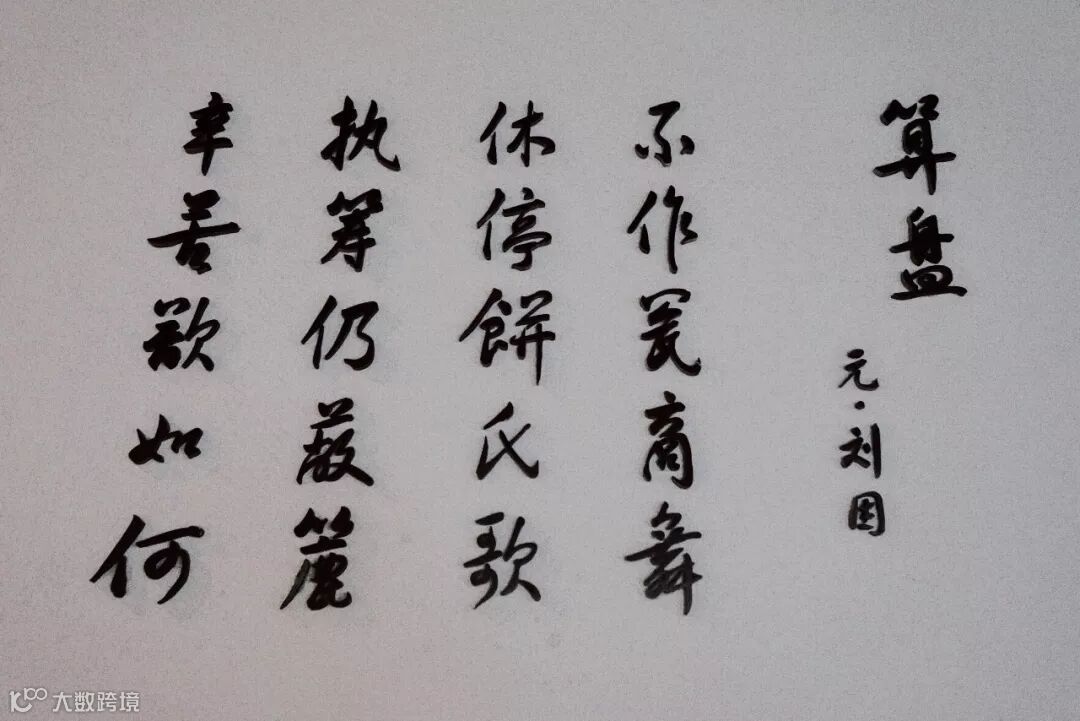 算盘
元·刘因
不作瓮商舞
休停餅氏歌
执筹仍蔽簏
辛苦欲如何
大数跨境